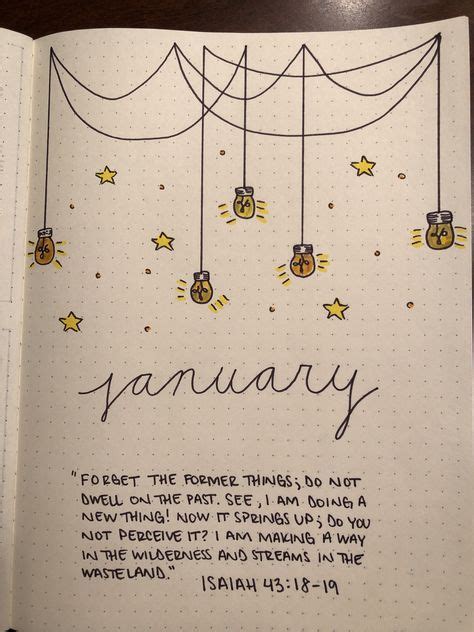 january
"FORGET THE FORMER THINGS; DO NOT
DWELL ON THE PAST. SEE, I AM DOING A
NEW THING! NOW IT SPRINGS UP; DO YOU
NOT PERCEIVE IT? I AM MAKING A WAY
IN THE WILDERNESS AND STREAMS IN THE
WASTELAND."
ISAIAH 43:18-19